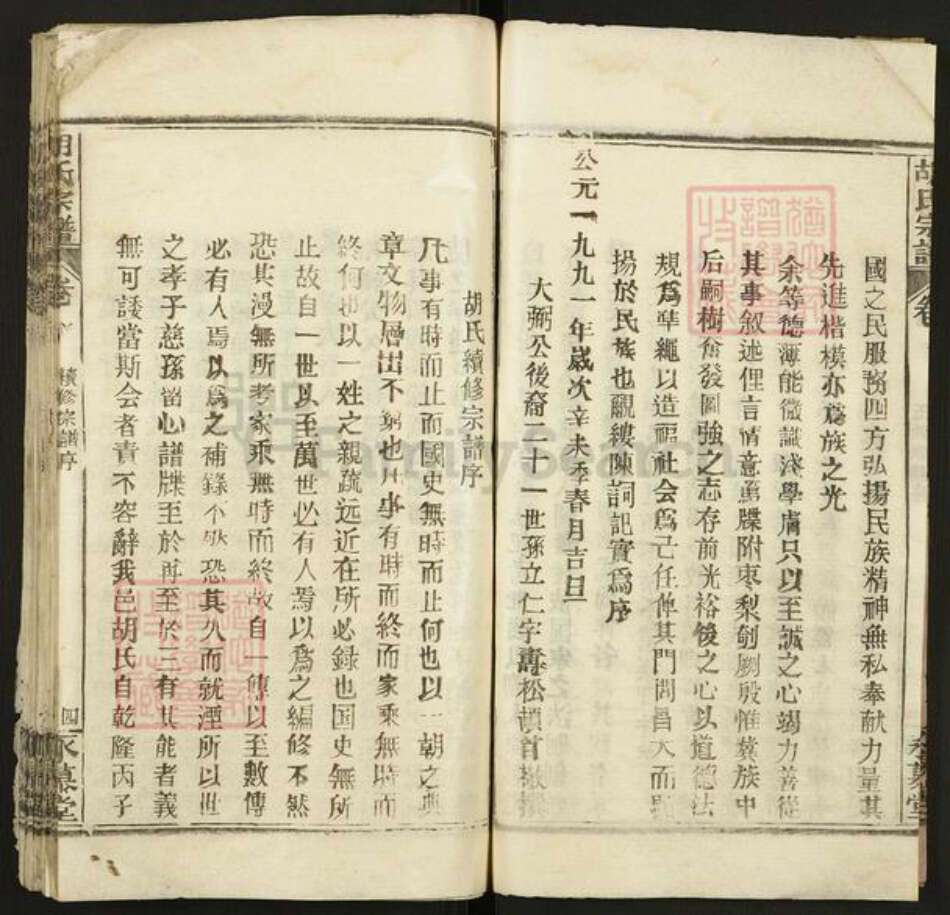 胡氏宗譜
卷
國之民服務四方弘揚民族精神無私奉献力量其
先進楷模亦爲族之光
余等德薄能微識淺學膚只以至誠之心竭力善從
其事叙述俚言情意勇牒附枣梨剞劂殷惟冀族中
后嗣樹奮發圖強之志存前光裕後之心以道德法
規爲準繩以造福社会爲己任俾其門閭昌大而顯
揚於民族也覼縷陳詞記實爲序
公元一九九一年歲次辛未季春月吉旦
大弼公後裔二十一世孫立仁字壽松頓首撤
永慕堂
胡氏續修宗譜序
凡事有時而止而國史無時而止何也以一朝之典
章文物層出不窮也凡事有時而終而家乘無時而
終何也以一姓之親疏远近在所必録也国史無所
止故自一世以至萬世必有人焉以爲之編修不然
恐其漫無所考家乘無時而終故自一傳以至數傳
必有人焉以爲之補錄不然恐其久而就湮所以世
之孝子慈孫留心譜牒至於再至於三有其能者義
無可諉當斯会者責不容辭我邑胡氏自乾隆丙子
胡氏宗譜
卷
續修宗譜序
四
永慕堂
FamilySearch